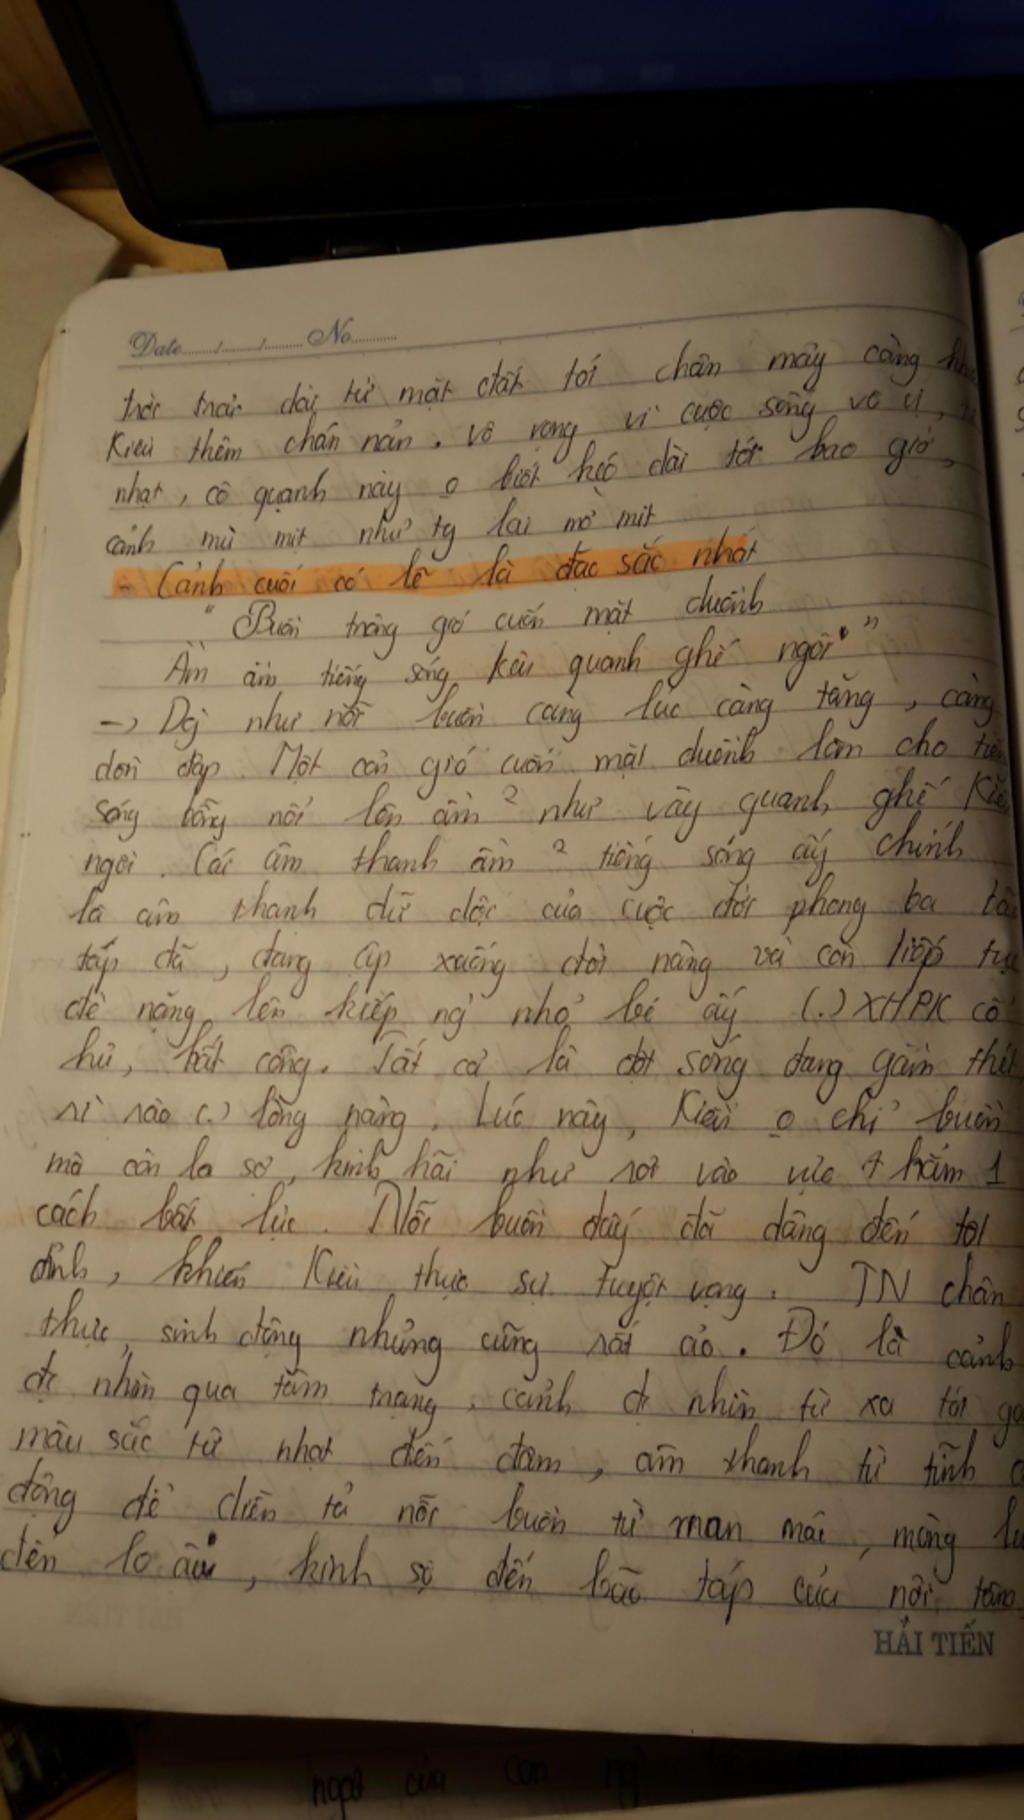 Date....../....../......... No...........
trời trải dài từ mặt đất tới chân mây càng
Kiều thêm chán nản, vô vọng vì cuộc sống vô vị,
nhạt, cô quạnh này o biết kéo dài tới bao giờ,
cảnh mù mịt như tg lai mờ mịt
- Cảnh cuối có lẽ là đặc sắc nhất
"Buồn trông gió cuốn mặt duềnh
Ầm ầm tiếng sóng kêu quanh ghế ngồi"
-> Dg như nỗi buồn càng lúc càng tăng, càng
dồn dập. Một cơn gió cuốn mặt duềnh làm cho
sóng bỗng nổi lên ầm 2 như vây quanh ghế Kiều
ngồi. Cái âm thanh ầm 2 tiếng sóng ấy chính
là âm thanh dữ dội của cuộc đời phong ba
táp đã, đang ập xuống đời nàng và còn tiếp tục
đè nặng lên kiếp ng nhỏ bé ấy (.) XHPK cổ
hủ, bất công. Tất cả là đợt sóng đang gầm
rì rào (.) lòng nàng. Lúc này, Kiều o chỉ buồn
mà còn lo sợ, kinh hãi như rơi vào vực thẳm 1
cách bất lực. Nỗi buồn đấy đã dâng đến tột
đỉnh, khiến Kiều thực sự tuyệt vọng. TN chân
thực, sinh động nhưng cũng rất ảo. Đó là cảnh
đc nhìn qua tâm trạng, cảnh đc nhìn từ xa tới
màu sắc từ nhạt đến đậm, âm thanh từ tĩnh
động để diễn tả nỗi buồn từ man mác, mông
đến lo âu, kinh sợ đến bão táp của nội tâm
HẢI TIẾN
ngờ của con ng